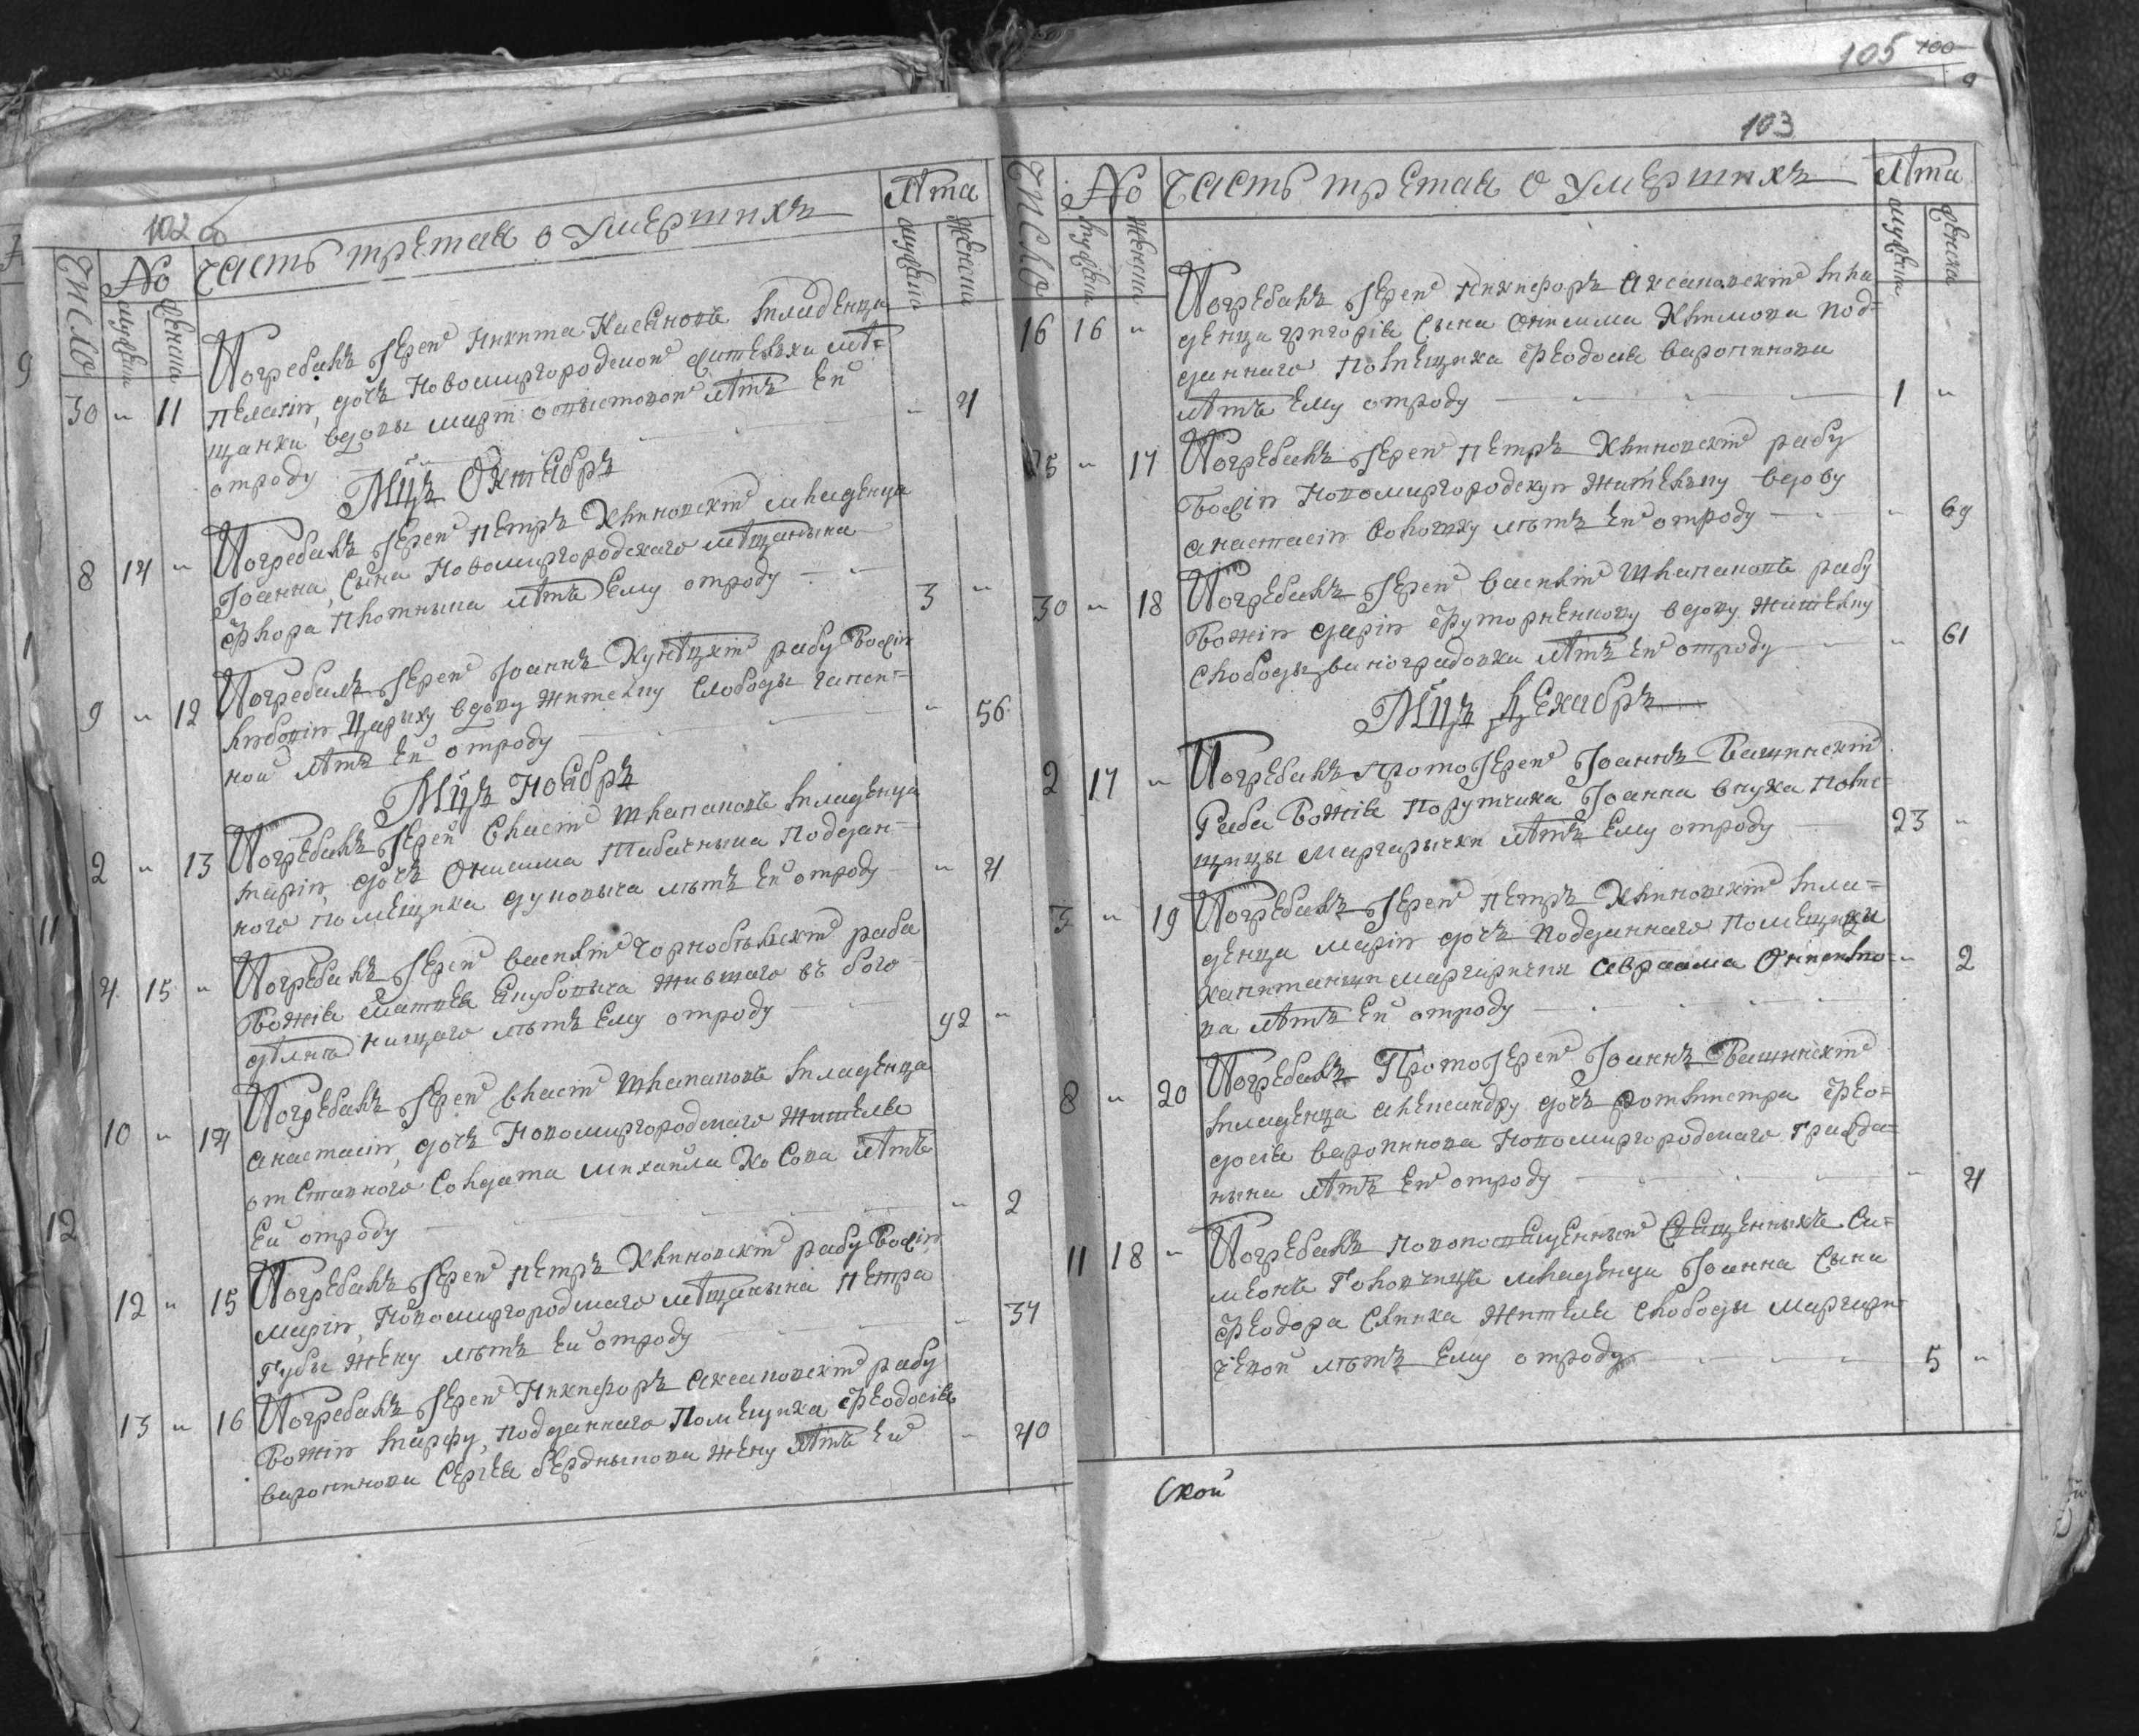 102
Часть третая о умершихъ
Лѣта
Число
No
мужеска
женска
мужеска
женска
30 " 11 Погребалъ Іерей Никита Касяновъ младенца
Пелагію, дочь Новомиргородской жителки мѣ=
щанки вдовы лѣтъ Ей
отроду " 4
Мцъ Октябръ
8 14 " Погребалъ Іерей Петръ Клиновскій младенца
Іоанна, Сына Новомиргородскаго мѣщанина
Флора Плотныка лѣтъ Ему отроду 3 "
9 " 12 Погребалъ Іерей Іоаннъ Кунѣцкій рабу Божію
Любовію Царыху вдову жителку Слободы
ной лѣтъ Ей отроду " 56
Мцъ Ноябръ
2 " 13 Погребалъ Іерей Власій Шлапаковъ младенца
Марію, дочь Онисима Табачныка Поддан=
ного помещика Дуновыча лѣтъ Ей отроду " 4
4 15 " Погребалъ Іерей Василій Чорнобѣльскій раба
Божія Матвея жившаго въ бого=
дѣлнѣ нищаго лѣтъ Ему отроду 92 "
10 " 14 Погребалъ Іерей Власій Шлапаковъ младенца
Анастасію, дочь Новомиргородскаго жителя
отставного Солдата Михайла Косова лѣтъ
Ей отроду " 2
12 " 15 Погребалъ Іерей Петръ Клиновскій рабу Божію
Марію, Новомиргородскаго мѣщанына Петра
Губы жену лѣтъ Ей отроду " 37
13 " 16 Погребалъ Іерей Никифоръ Аксановскій рабу
Божію Марфу, подданнаго Помещика Феодосія
Варонинова Сергея Бердныкова жену лѣтъ Ей " 40
105 100
103
Число
No
мужеска
женска
Часть третая о умершихъ
Лѣта
мужеска
женска
16 16 " Погребалъ Іерей Никифоръ Аксановскій мла
денца Григорія Сына Онисима Климова под=
даннаго Помѣщика Феодосія Варонинова
лѣтъ Ему отроду 1 "
25 " 17 Погребалъ Іерей Петръ Клиновскій рабу
Божію Новомиргородскую жителку вдову
Анастасію лѣтъ Ей отроду " 69
30 " 18 Погребалъ Іерей Василій Шлапаковъ рабу
Божію Дарію вдову жителку
Слободы Виноградовки лѣтъ Ей отроду " 61
Мцъ Декабръ
2 17 " Погребалъ Протоіерей Іоаннъ Ващинскій
Раба Божія Порутчика Іоанна внука помѣ=
щицы Маргарычки лѣтъ Ему отроду 23 "
3 " 19 Погребалъ Іерей Петръ Клиновскій мла=
денца Марію дочь подданнаго помещици
капитанши Маргаричеи Авраама
ва лѣтъ Ей отроду " 2
8 " 20 Погребалъ Протоіерей Іоаннъ Ващинскій
младенца Александру дочь ротмистра Фео=
досія Варонинова Новомиргородскаго гражда=
нына лѣтъ Ей отроду " 4
11 18 " Погребалъ новопосвященный Священныкъ Си=
меонъ младенца Іоанна Сына
Феодора Слинка жителя Слободы Маргари=
чевой лѣтъ Ему отроду 5 "
Ской